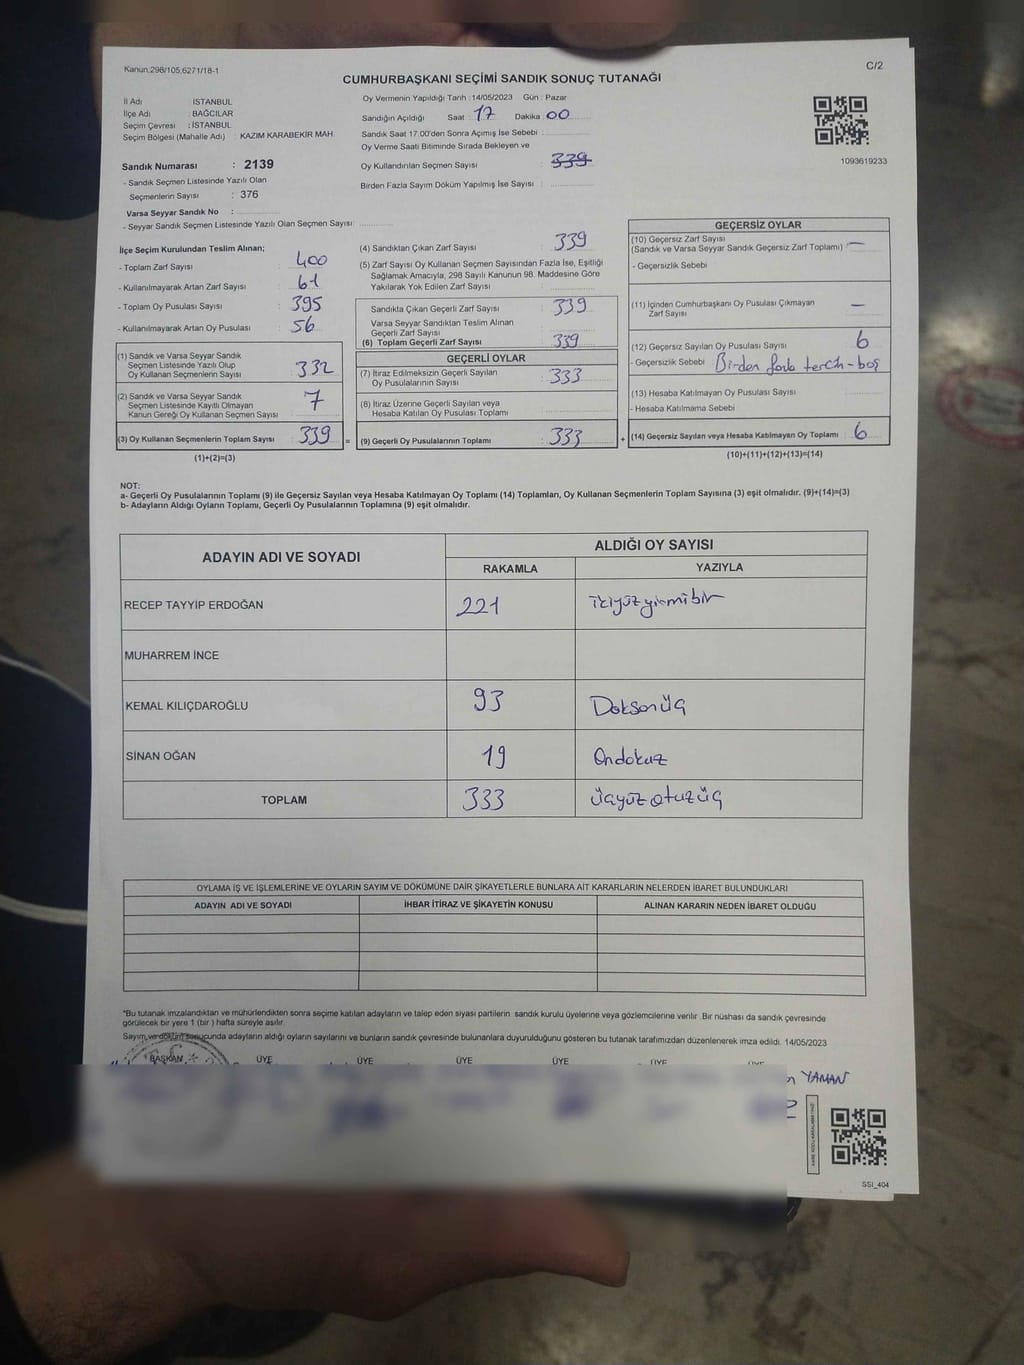 Kanun,298/105,6271/18-1
C/2
CUMHURBAŞKANI SEÇİMİ SANDIK SONUÇ TUTANAĞI
İl Adı : İSTANBUL
İlçe Adı : BAĞCILAR
Seçim Çevresi : İSTANBUL
Seçim Bölgesi (Mahalle Adı) : KAZIM KARABEKİR MAH.
Sandık Numarası : 2139
- Sandık Seçmen Listesinde Yazılı Olan
Seçmenlerin Sayısı : 376
Varsa Seyyar Sandık No :
- Seyyar Sandık Seçmen Listesinde Yazılı Olan Seçmen Sayısı:
Oy Vermenin Yapıldığı Tarih :14/05/2023 Gün : Pazar
Sandığın Açıldığı Saat : 17 Dakika : 00
Sandık Saat 17:00'den Sonra Açımış İse Sebebi :
Oy Verme Saati Bitiminde Sırada Bekleyen ve
Oy Kullandırılan Seçmen Sayısı : 339
Birden Fazla Sayım Döküm Yapılmış İse Sayısı :
1093619233
İlçe Seçim Kurulundan Teslim Alınan;
- Toplam Zarf Sayısı : 400
- Kullanılmayarak Artan Zarf Sayısı : 61
- Toplam Oy Pusulası Sayısı : 395
- Kullanılmayarak Artan Oy Pusulası : 56
(1) Sandık ve Varsa Seyyar Sandık
Seçmen Listesinde Yazılı Olup
Oy Kullanan Seçmenlerin Sayısı : 332
(2) Sandık ve Varsa Seyyar Sandık
Seçmen Listesinde Kayıtlı Olmayan
Kanun Gereği Oy Kullanan Seçmen Sayısı : 7
(3) Oy Kullanan Seçmenlerin Toplam Sayısı : 339
(1)+(2)=(3)
(4) Sandıktan Çıkan Zarf Sayısı : 339
(5) Zarf Sayısı Oy Kullanan Seçmen Sayısından Fazla İse, Eşitliği
Sağlamak Amacıyla; 298 Sayılı Kanunun 98. Maddesine Göre
Yakılarak Yok Edilen Zarf Sayısı :
Sandıkta Çıkan Geçerli Zarf Sayısı : 339
Varsa Seyyar Sandıktan Teslim Alınan
Geçerli Zarf Sayısı
(6) Toplam Geçerli Zarf Sayısı : 339
GEÇERLİ OYLAR
(7) İtiraz Edilmeksizin Geçerli Sayılan
Oy Pusulalarının Sayısı : 333
(8) İtiraz Üzerine Geçerli Sayılan veya
Hesaba Katılan Oy Pusulası Toplamı :
= (9) Geçerli Oy Pusulalarının Toplamı : 333 +
GEÇERSİZ OYLAR
(10) Geçersiz Zarf Sayısı
(Sandık ve Varsa Seyyar Sandık Geçersiz Zarf Toplamı) : —
- Geçersizlik Sebebi
(11) İçinden Cumhurbaşkanı Oy Pusulası Çıkmayan
Zarf Sayısı : —
(12) Geçersiz Sayılan Oy Pusulası Sayısı : 6
- Geçersizlik Sebebi Birden fazla terch-boş
(13) Hesaba Katılmayan Oy Pusulası Sayısı :
- Hesaba Katılmama Sebebi
(14) Geçersiz Sayılan veya Hesaba Katılmayan Oy Toplamı : 6
(10)+(11)+(12)+(13)=(14)
NOT:
a- Geçerli Oy Pusulalarının Toplamı (9) ile Geçersiz Sayılan veya Hesaba Katılmayan Oy Toplamı (14) Toplamları, Oy Kullanan Seçmenlerin Toplam Sayısına (3) eşit olmalıdır. (9)+(14)=(3)
b- Adayların Aldığı Oyların Toplamı, Geçerli Oy Pusulalarının Toplamına (9) eşit olmalıdır.
ADAYIN ADI VE SOYADI
ALDIĞI OY SAYISI
RAKAMLA YAZIYLA
RECEP TAYYİP ERDOĞAN 221 ikiyüzyirmibir
MUHARREM İNCE
KEMAL KILIÇDAROĞLU 93 Doksanüç
SİNAN OĞAN 19 Ondokuz
TOPLAM 333 üçyüzotuzüç
OYLAMA İŞ VE İŞLEMLERİNE VE OYLARIN SAYIM VE DÖKÜMÜNE DAİR ŞİKAYETLERLE BUNLARA AİT KARARLARIN NELERDEN İBARET BULUNDUKLARI
ADAYIN ADI VE SOYADI İHBAR İTİRAZ VE ŞİKAYETİN KONUSU ALINAN KARARIN NEDEN İBARET OLDUĞU
*Bu tutanak imzalandıktan ve mühürlendikten sonra seçime katılan adayların ve talep eden siyasi partilerin sandık kurulu üyelerine veya gözlemcilerine verilir .Bir nüshası da sandık çevresinde
görülecek bir yere 1 (bir ) hafta süreyle asılır.
Sayım ve döküm sonucunda adayların aldığı oyların sayılarını ve bunların sandık çevresinde bulunanlara duyurulduğunu gösteren bu tutanak tarafımızdan düzenlenerek imza edildi. 14/05/2023
BAŞKAN ÜYE ÜYE ÜYE ÜYE ÜYE ÜYE
YAMAN
SSI_404